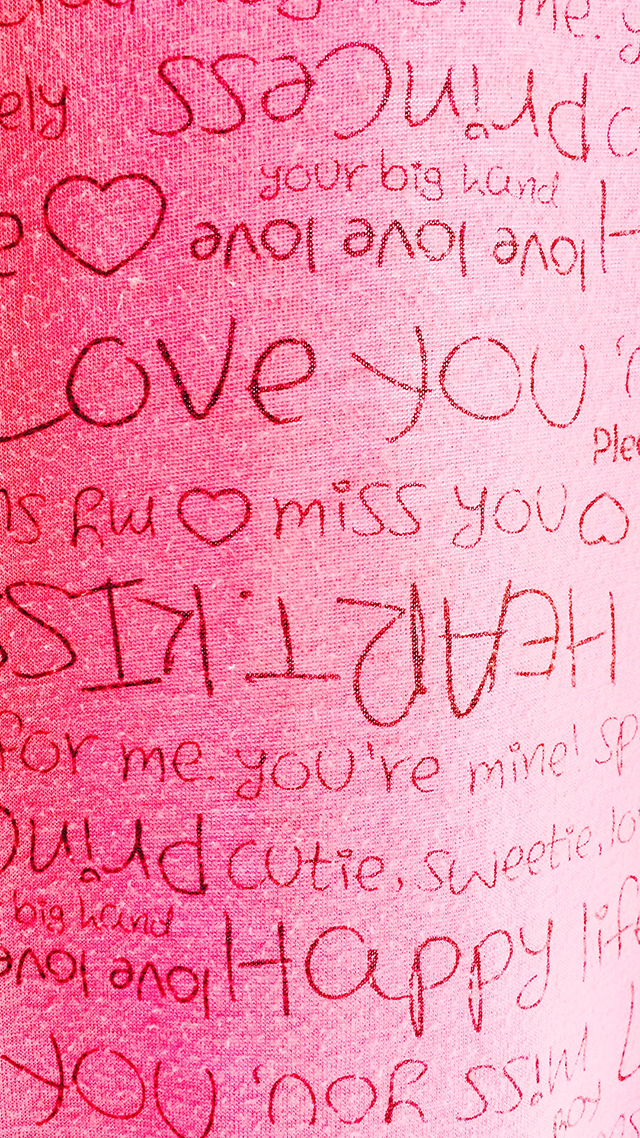 me.
Princess
your big hand
love love love
Love you
miss you
my
HEART. KISS
for me you're mine!
Princ
cutie, sweetie,
big hand
love love Happy life
you
miss you.